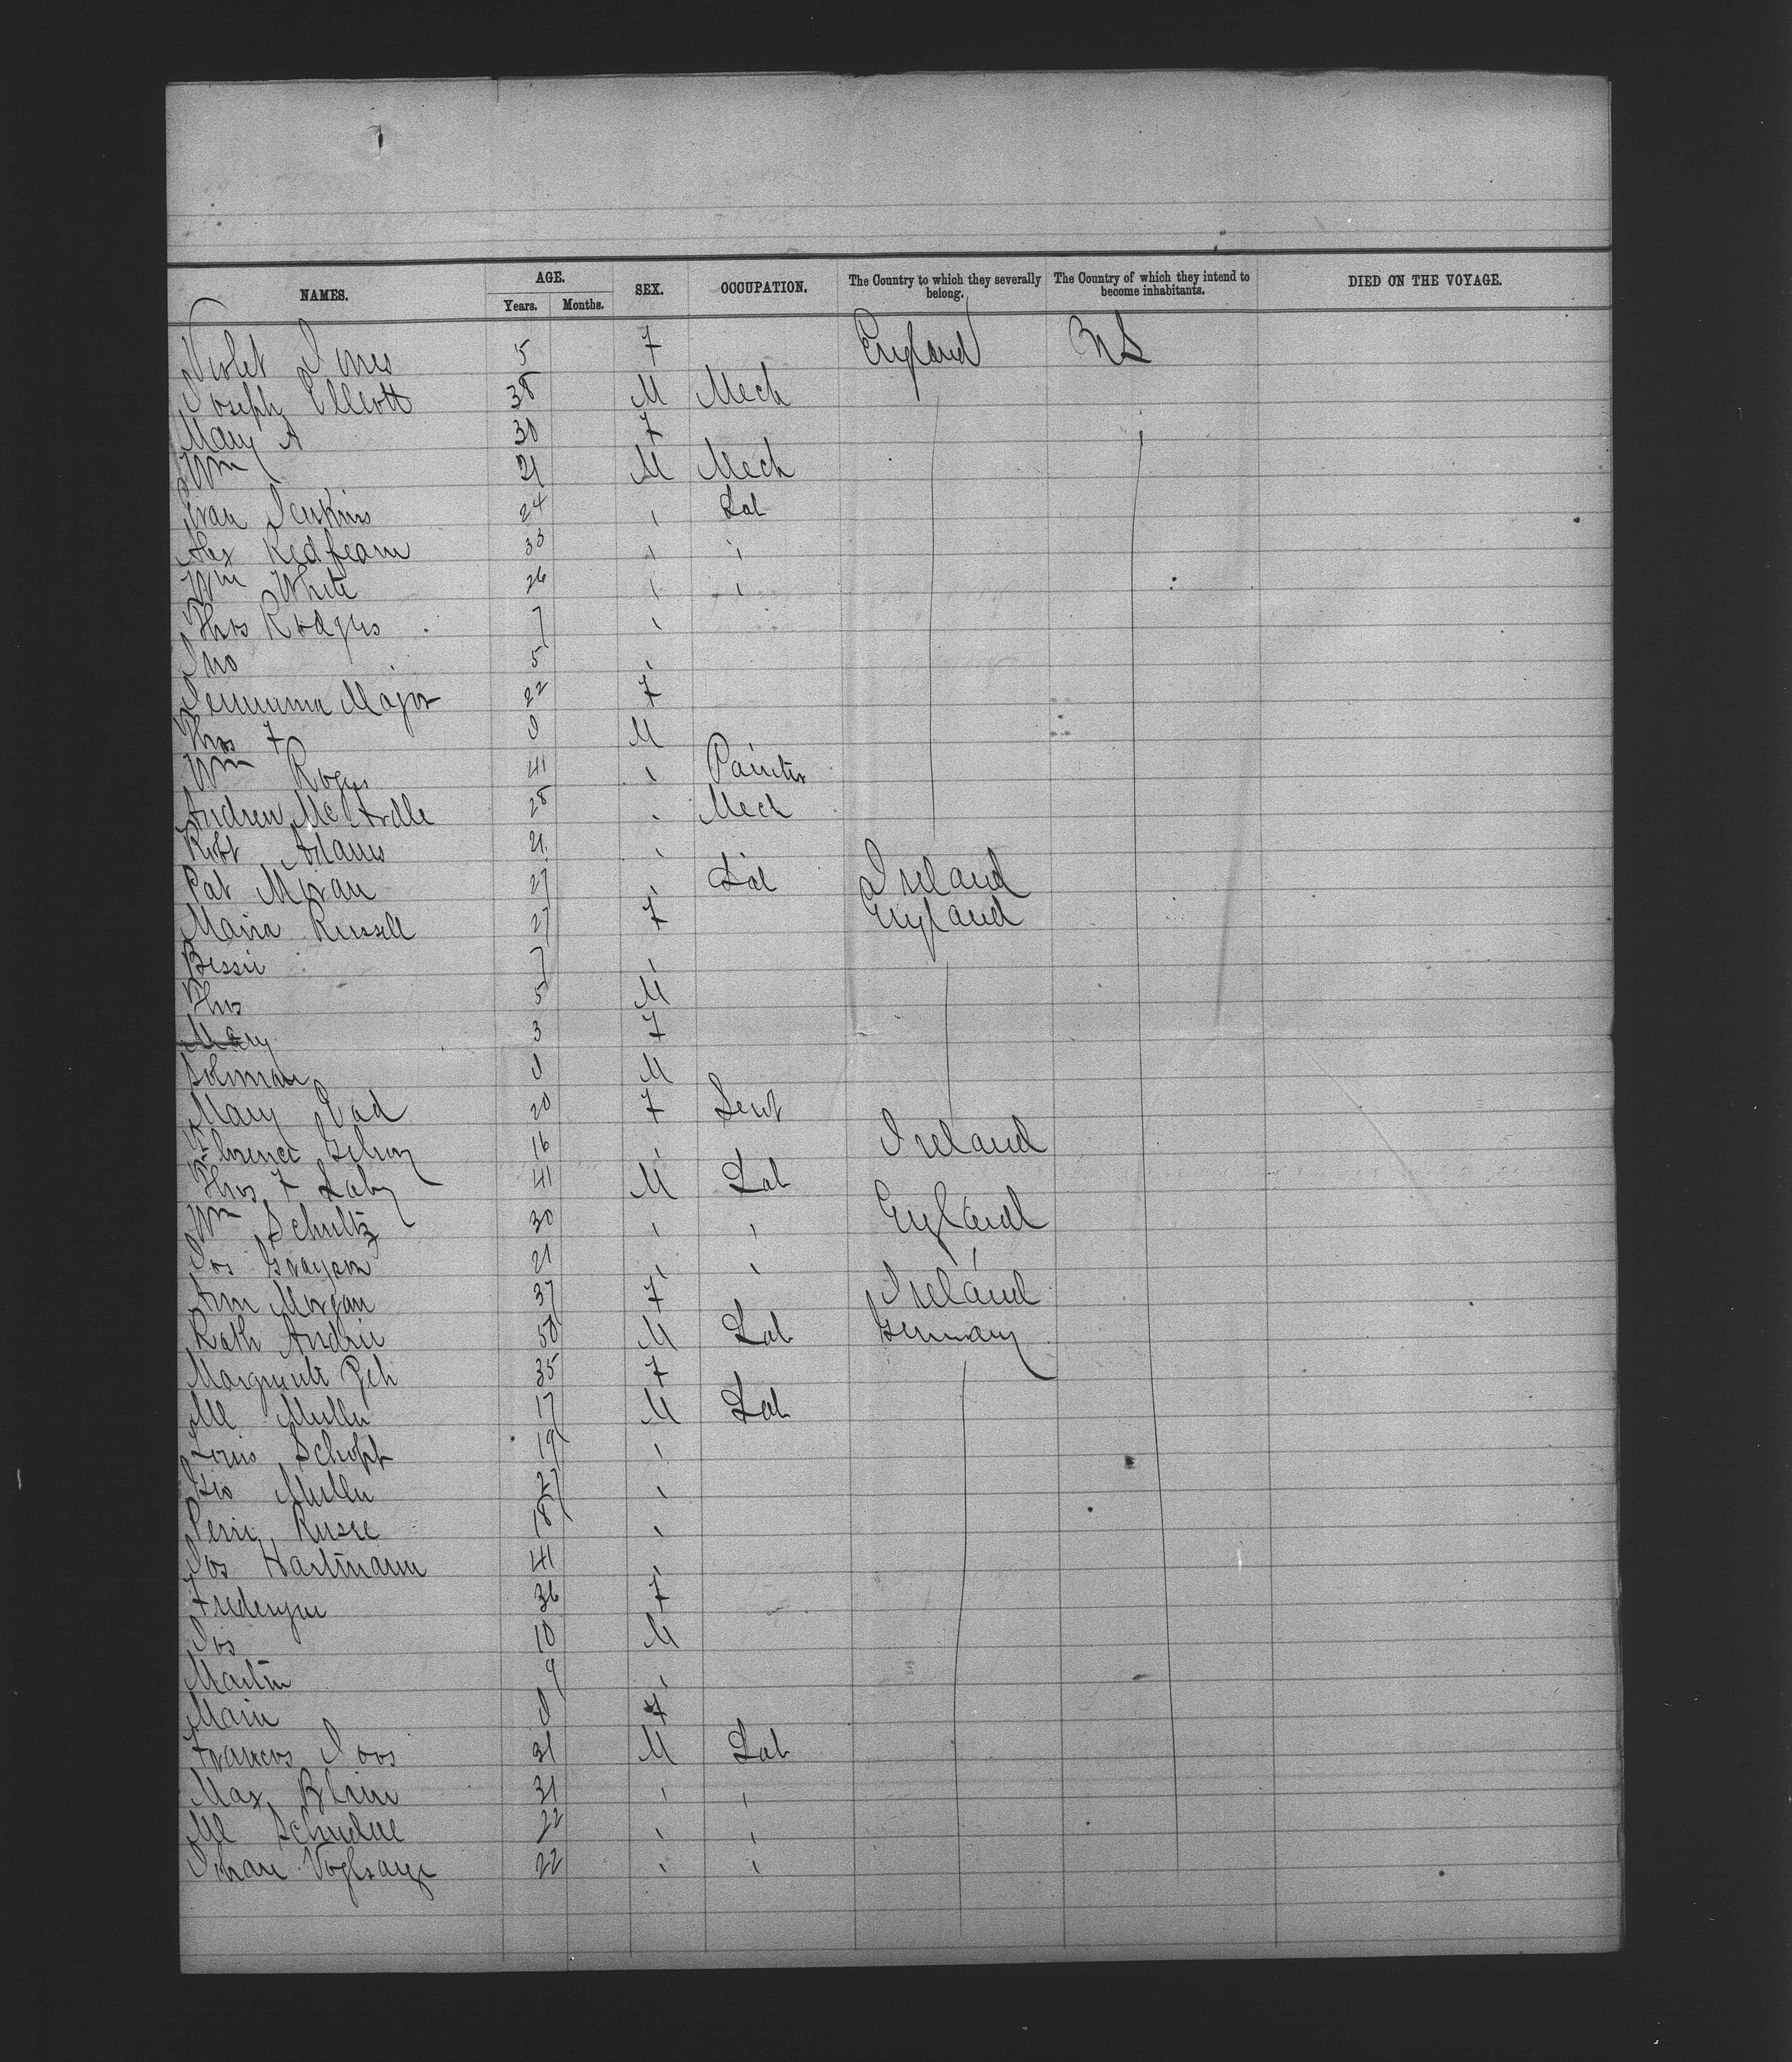 NAMES. AGE. SEX. OCCUPATION. The Country to which they severally belong. The Country of which they intend to become inhabitants. DIED ON THE VOYAGE.
Years. Months.
Violet Jones 5 F England
Joseph Elliott 38 M Mech
Mary A 30 F
Wm 21 M Mech
Evan Jenkins 24 " Lab
Alex Redfearn 33 " "
Wm White 26 " "
Thos Rodgers 7 "
Jno 5 "
Jemmima Major 22 F
Thos F 0 M
Wm Rogers 41 " Painter
Andrew McArdle 28 " Mech
Robt Adams 21 "
Pat Moran 27 " Lab Ireland
Maria Russell 27 F England
Bessie 7 "
Thos 5 M
Mary 3 F
Soloman 0 M
Mary 20 F Servt
Florence 16 " Ireland
Thos F 41 M Lab
Wm Schultz 30 " " England
Jos Grayson 21 " " "
Ann Morgan 37 F Ireland
Andrie 50 M Lab Germany
35 F
Ml Muller 17 M Lab
Louis Schopp 19 "
Geo Muller 27 "
18 "
Jos Hartmann 41 "
36 F
Jos 10 M
Martin 9 "
Marie 0 F
Francois Joos 31 M Lab
Max 31 " "
Ml 22 " "
22 " "